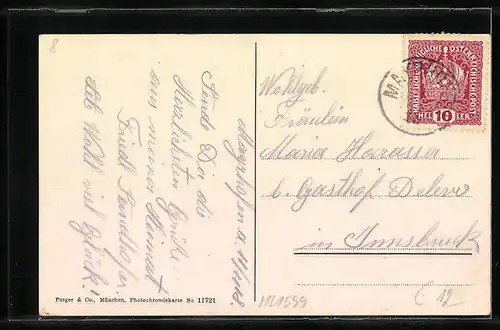 Mayrhofen a. 11/11 18.
Sende Dir die
Herzlichsten Grüße
aus meiner Heimat
Friedl Sandhofer
Leb Wohl viel Glück!
Wohlgeb.
Fräulein
Maria
b. Gasthof
in Innsbruck
KAISERLICHE KÖNIGLICHE ÖSTERREICHISCHE POST
HELLER 10 HELLER
MA
Purger & Co., München, Photochromiekarte No. 11721
M21599
12